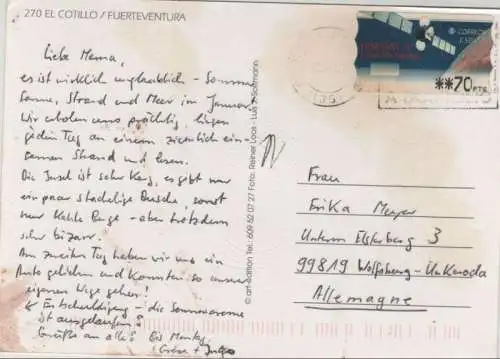 270 EL COTILLO / FUERTEVENTURA
Liebe Mama,
es ist wirklich unglaublich - Sommer
Sonne, Strand und Meer im Januar.
Wir erholen uns prächtig, liegen
jeden Tag an einem ziemlich ein-
samen Strand und lesen.
Die Insel ist sehr karg, es gibt nur
ein paar stachelige Büsche, sonst
nur kahle Berge - aber trotzdem
sehr bizarr.
Am zweiten Tag haben wir uns ein
Auto geliehen und konnten so unsere
eigenen Wege gehen!
Entschuldigung - die Sonnencreme
ist ausgelaufen!
Grüße an alle! Bis
© art-edition Tel.: 609 52 07 27 Foto: Reiner Loos - Luis
CORREOS
ESPAÑA
**70 PTS
Frau
Erika Meyer
Unterm Elsterberg 3
99819 Wolfsburg-Unkeroda
Allemagne